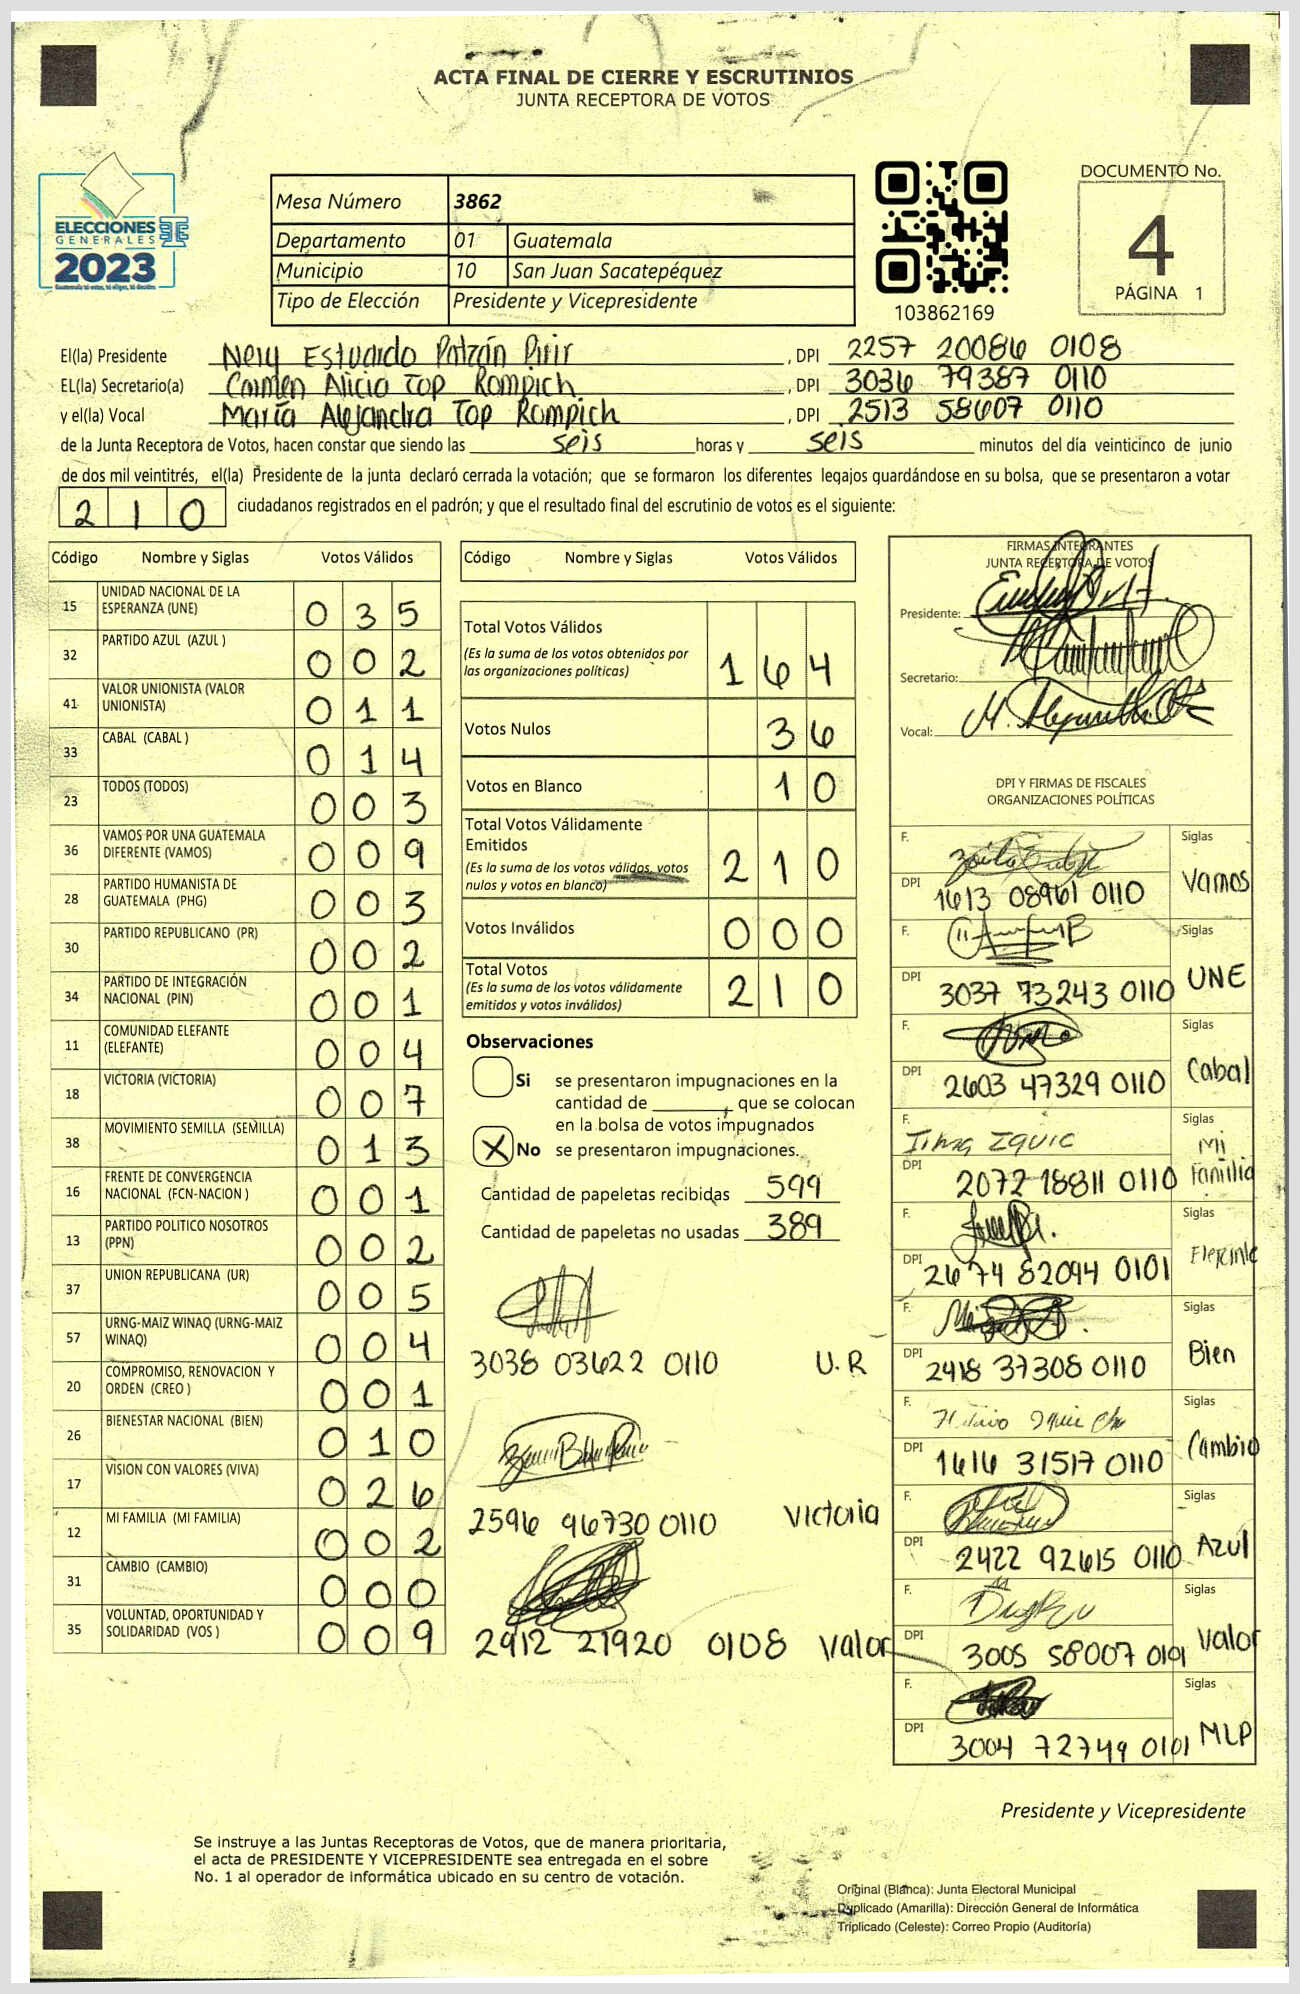 ACTA FINAL DE CIERRE Y ESCRUTINIOS
JUNTA RECEPTORA DE VOTOS
ELECCIONES
GENERALES
2023
Mesa Número 3862
Departamento 01 Guatemala
Municipio 10 San Juan Sacatepéquez
Tipo de Elección Presidente y Vicepresidente
103862169
DOCUMENTO No.
4
PÁGINA 1
El(la) Presidente Nery Estuardo Patzán Pirir , DPI 2257 20086 0108
EL(la) Secretario(a) Carmen Alicia Top Rompich , DPI 3036 79387 0110
y el(la) Vocal María Alejandra Top Rompich , DPI 2513 58607 0110
de la Junta Receptora de Votos, hacen constar que siendo las seis horas y seis minutos del día veinticinco de junio
de dos mil veintitrés, el(la) Presidente de la junta declaró cerrada la votación; que se formaron los diferentes legajos guardándose en su bolsa, que se presentaron a votar
210 ciudadanos registrados en el padrón; y que el resultado final del escrutinio de votos es el siguiente:
Código Nombre y Siglas Votos Válidos
15 UNIDAD NACIONAL DE LA ESPERANZA (UNE) 035
32 PARTIDO AZUL (AZUL ) 002
41 VALOR UNIONISTA (VALOR UNIONISTA) 011
33 CABAL (CABAL ) 014
23 TODOS (TODOS) 003
36 VAMOS POR UNA GUATEMALA DIFERENTE (VAMOS) 009
28 PARTIDO HUMANISTA DE GUATEMALA (PHG) 003
30 PARTIDO REPUBLICANO (PR) 002
34 PARTIDO DE INTEGRACIÓN NACIONAL (PIN) 001
11 COMUNIDAD ELEFANTE (ELEFANTE) 004
18 VICTORIA (VICTORIA) 007
38 MOVIMIENTO SEMILLA (SEMILLA) 013
16 FRENTE DE CONVERGENCIA NACIONAL (FCN-NACION ) 001
13 PARTIDO POLITICO NOSOTROS (PPN) 002
37 UNION REPUBLICANA (UR) 005
57 URNG-MAIZ WINAQ (URNG-MAIZ WINAQ) 004
20 COMPROMISO, RENOVACION Y ORDEN (CREO ) 001
26 BIENESTAR NACIONAL (BIEN) 010
17 VISION CON VALORES (VIVA) 026
12 MI FAMILIA (MI FAMILIA) 002
31 CAMBIO (CAMBIO) 000
35 VOLUNTAD, OPORTUNIDAD Y SOLIDARIDAD (VOS ) 009
Código Nombre y Siglas Votos Válidos
Total Votos Válidos 164
(Es la suma de los votos obtenidos por
las organizaciones políticas)
Votos Nulos 36
Votos en Blanco 10
Total Votos Válidamente
Emitidos 210
(Es la suma de los votos válidos, votos
nulos y votos en blanco)
Votos Inválidos 000
Total Votos 210
(Es la suma de los votos válidamente
emitidos y votos inválidos)
Observaciones
Si se presentaron impugnaciones en la
cantidad de ________, que se colocan
en la bolsa de votos impugnados
X No se presentaron impugnaciones.
Cantidad de papeletas recibidas 599
Cantidad de papeletas no usadas 389
3038 03622 0110 U.R
2596 96730 0110 Victoria
2912 21920 0108 Valor
FIRMAS INTEGRANTES
JUNTA RECEPTORA DE VOTOS
Presidente:
Secretario:
Vocal:
DPI Y FIRMAS DE FISCALES
ORGANIZACIONES POLÍTICAS
F. Siglas
DPI 1613 08961 0110 Vamos
F. Siglas
DPI 3037 73243 0110 UNE
F. Siglas
DPI 2603 47329 0110 Cabal
F. Siglas
DPI 2072 18811 0110 Mi Familia
F. Siglas
DPI 2674 82094 0101
F. Siglas
DPI 2418 37308 0110 Bien
F. Siglas
DPI 1616 31517 0110 Cambio
F. Siglas
DPI 2422 92615 0110 Azul
F. Siglas
DPI 3005 58007 0101 Valor
F. Siglas
DPI 3004 72749 0101 MLP
Presidente y Vicepresidente
Se instruye a las Juntas Receptoras de Votos, que de manera prioritaria,
el acta de PRESIDENTE Y VICEPRESIDENTE sea entregada en el sobre
No. 1 al operador de informática ubicado en su centro de votación.
Original (Blanca): Junta Electoral Municipal
Duplicado (Amarilla): Dirección General de Informática
Triplicado (Celeste): Correo Propio (Auditoría)